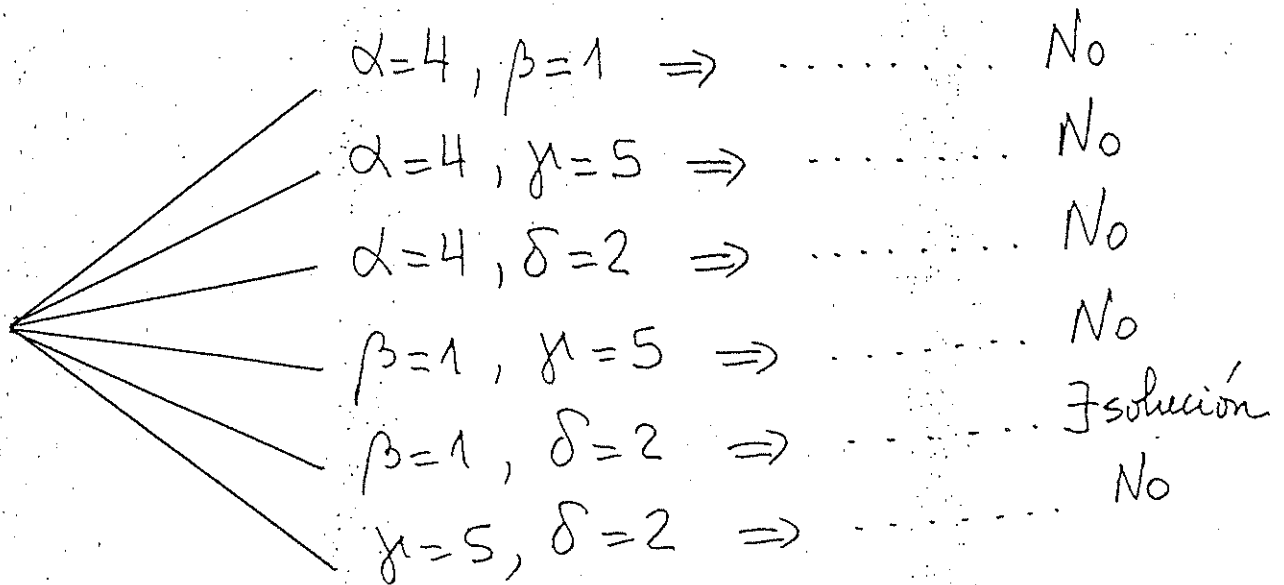 α=4, β=1 ⇒ ......... No
α=4, γ=5 ⇒ ......... No
α=4, δ=2 ⇒ ......... No
β=1, γ=5 ⇒ ......... No
β=1, δ=2 ⇒ ......... ∃ solución
γ=5, δ=2 ⇒ ......... No